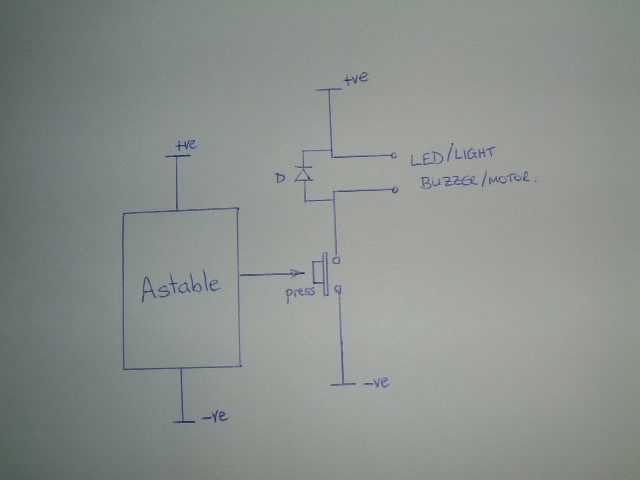 +ve
+ve
LED/LIGHT
BUZZER/MOTOR.
D
Astable
press
-ve
-ve